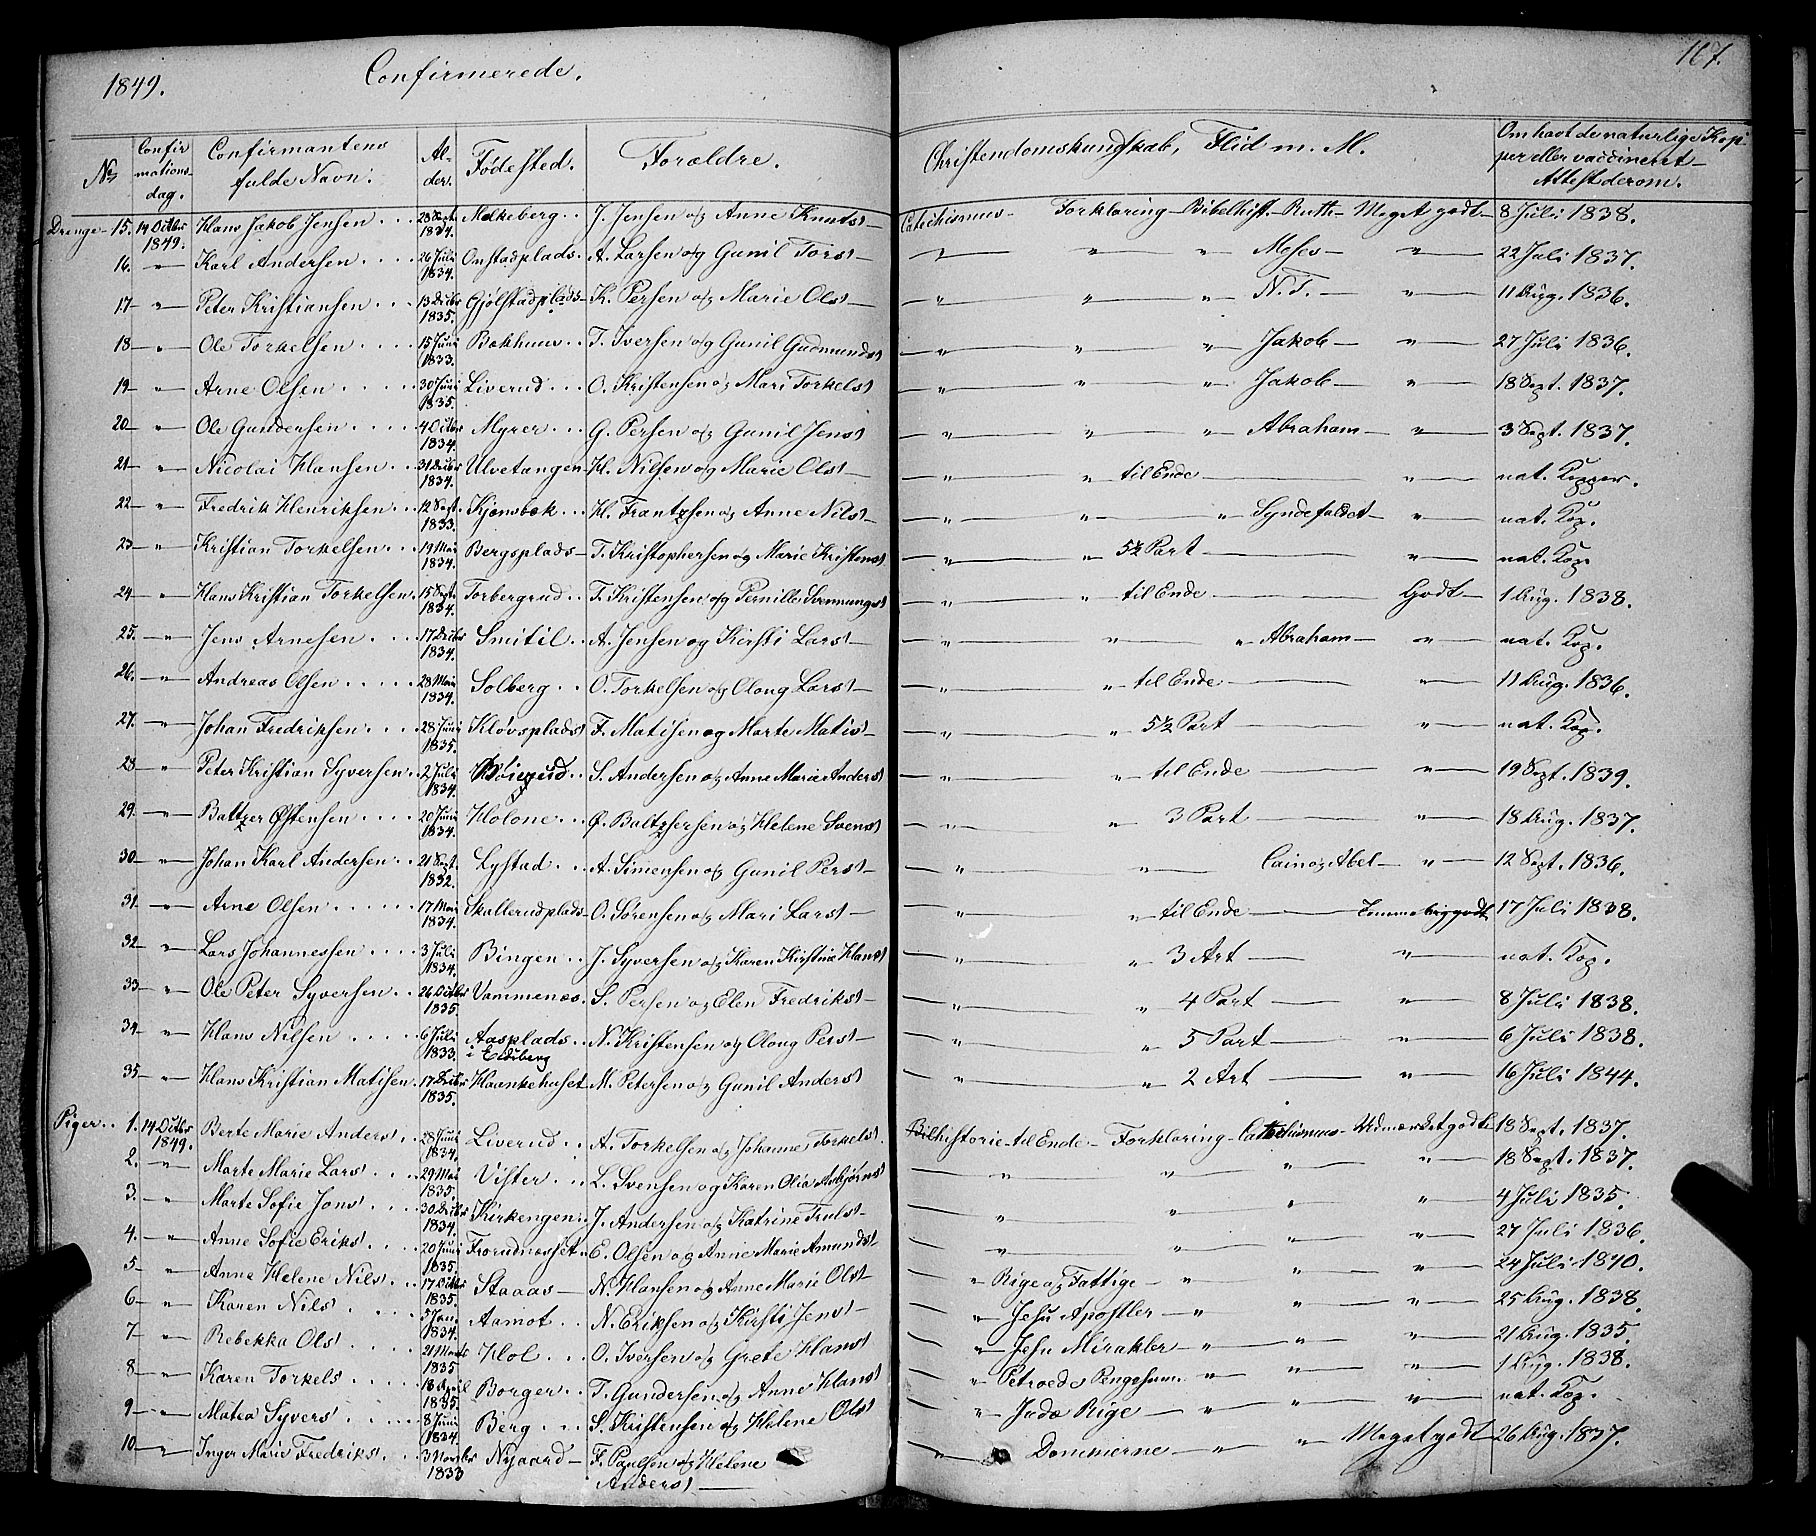 1849. Confirmerede. 167.
No Confirmationsdag. Confirmantens fulde Navn. Alder. Fødested. Forældre. Christendomskundskab, Flid m. M. Om havt de naturlige Kopper eller vaccineret Attest derom.
Drenge 15. 14 Octbr 1849. Hans Jakob Jensen 28 Sept. 1834. Mækeberg J. Jensen og Anne Knuts Catechismus Forklaring Bibelhist. Ruth Meget godt 8 Juli 1838.
16. " Karl Andersen 26 Juli 1834. Onstadplads A. Larsen og Gunil Torst " " " Moses " 22 Juli 1837.
17 " Peter Kristiansen 13 Decbr 1835. Gjølstadplads K. Persen og Marie Olst " " " N. T. " 11 Aug. 1836.
18 " Ole Torkelsen 15 Juni 1833. Bækhuus T. Iversen og Gunil Gudmunds " " " Jakob " 27 Juli 1836.
19 " Arne Olsen 30 Juni 1835. Liverud O. Kristensen og Mari Torkelst " " " Jakob " 18 Sept. 1837.
20 " Ole Gundersen 4 Octbr 1834. Myrer G. Persen og Gunil Jenst " " " Abraham " 3 Sept. 1837.
21 " Nicolai Hansen 31 Decbr 1834. Ulvetangen H. Nilsen og Marie Olst " " til Ende " nat. Kopper.
22 " Fredrik Henriksen 12 Sept. 1833. Kjønsbæk H. Frantzsen og Anne Nilst " " " Syndefaldet " nat. Kop.
23 " Kristian Torkelsen 19 Mai 1834. Bergsplads T. Kristophersen og Marie Kristenst " " 5½ Part " nat. Kop.
24 " Hans Kristian Torkelsen 15 Sept. 1834. Torbergrud T. Kristensen og Pernille Svenningst " " til Ende Godt 1 Aug. 1838.
25. " Jens Arnesen 17 Decbr 1834. Smitil A. Jensen og Kirsti Larst " " " Abraham " nat. Kop.
26. " Andreas Olsen 28 Mai 1834. Solberg O. Torkelsen og Olong Larst " " til Ende " 11 Aug. 1836.
27. " Johan Fredriksen 28 Juni 1835. Kløvsplads F. Matisen og Marte Matist " " 5½ Part " nat. Kop.
28 " Peter Kristian Syversen 2 Juli 1834. Bøierud S. Andersen og Anne Marie Anderst " " til Ende " 19 Sept. 1839.
29. " Baltzer Østensen 20 Juni 1834. Holone Ø. Baltzersen og Helene Svenst " " 3 Part " 18 Aug. 1837.
30 " Johan Karl Andersen 21 Sept. 1832. Lystad A. Simensen og Gunil Perst " " Cain og Abel " 12 Sept. 1836.
31 " Arne Olsen 17 Mai 1834. Skallerudplads O. Sørensen og Mari Larst " " til Ende Temmelig godt 17 Juli 1838.
32 " Lars Johannessen 3 Juli 1834. Bingen J. Syversen og Karen Kirstine Hanst " " 3 Art " nat. Kop.
33 " Ole Peter Syversen 26 Octbr 1835. Vammenæs S. Persen og Elen Fredrikst " " 4 Part " 8 Juli 1838.
34 " Hans Nilsen 6 Juli 1833. Aasplads i Eidsberg N. Kristensen og Olong Perst " " 5 Part " 6 Juli 1838.
35 " Hans Kristian Matisen 17 Decbr 1835. Haankehuset M. Petersen og Gunil Anderst " " 2 Art " 16 Juli 1844.
Piger 1. 14 Octbr 1849. Berte Marie Anderst 28 Juni 1834. Liverud A. Torkelsen og Johanne Torkelst Bibhistorie til Ende Forklaring Catechismus Udmærket godt 18 Sept. 1837.
2. " Marte Marie Larst 29 Mai 1835. Vister L. Svensen og Karen Olia Asbjørnst " " " " 18 Sept. 1837.
3. " Marte Sofie Jonst 30 Decbr 1834. Kirkengen J. Andersen og Katrine Trulst " " " " 4 Juli 1835.
4. " Anne Sofie Erikst 20 Juni 1835. Frorudnæsset E. Olsen og Anne Marie Amundst " " " " 27 Juli 1836.
5 " Anne Helene Nilst 17 Octbr 1835. Staaas N. Hansen og Anne Marie Olst " Rige og Fattige " " " 24 Juli 1840.
6 " Karen Nilst 5 Jan. 1834. Aamot N. Eriksen og Kirsti Jenst " Jesu Apostler " " " 25 Aug. 1838.
7 " Rebekka Olst 21 Marts 1835 Hol O. Iversen og Grete Hanst " Jesu Mirakler " " " 21 Aug. 1835.
8 " Karen Torkelst 18 April 1835. Borger T. Gundersen og Anne Hanst " Petro de Pengesum " " " 1 Aug. 1838.
9 " Matea Syverst 8 Juni 1834. Berg S. Kristensen og Helene Olst " Judæ Rige " " " nat. Kop.
10 " Inger Marie Fredrikst 3 Novbr 1833 Nygaard F. Paulsen og Helene Anderst " Dommerne " " Meget godt 26 Aug. 1837.